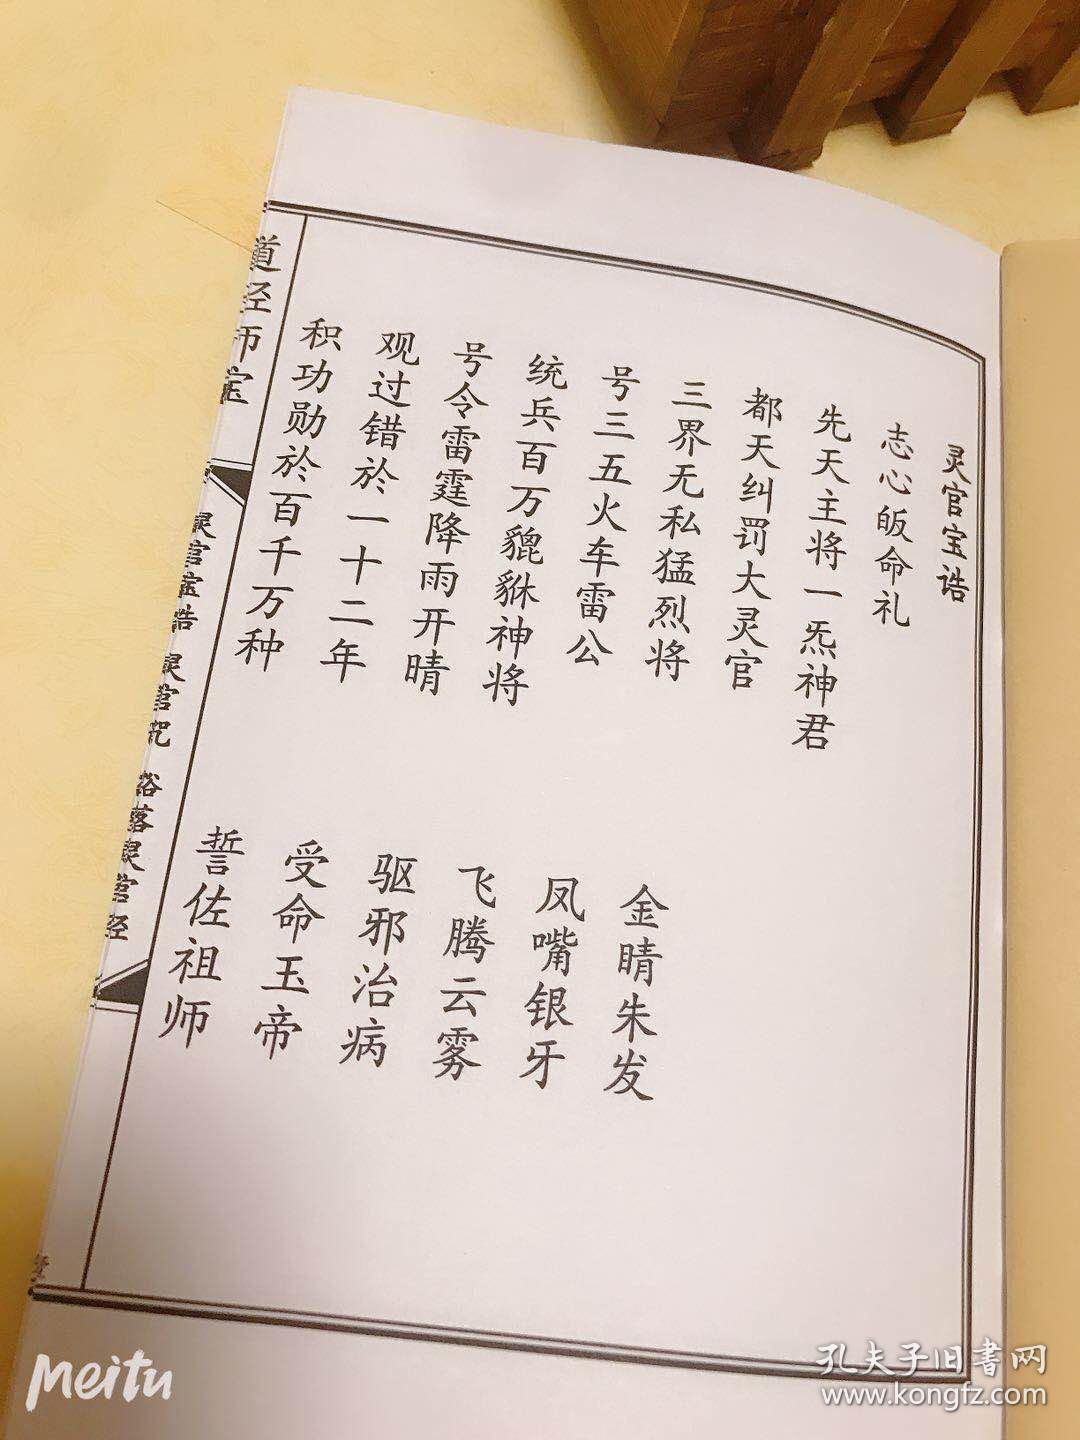 灵官宝诰
志心皈命礼
先天主将一炁神君
都天纠罚大灵官
三界无私猛烈将 金睛朱发
号三五火车雷公 凤嘴银牙
统兵百万貔貅神将 飞腾云雾
号令雷霆降雨开晴 驱邪治病
观过错於一十二年 受命玉帝
积功勋於百千万种 誓佐祖师
道经师宝
灵官宝诰 灵官咒 豁落灵官经
meitu
孔夫子旧書网
www.kongfz.com